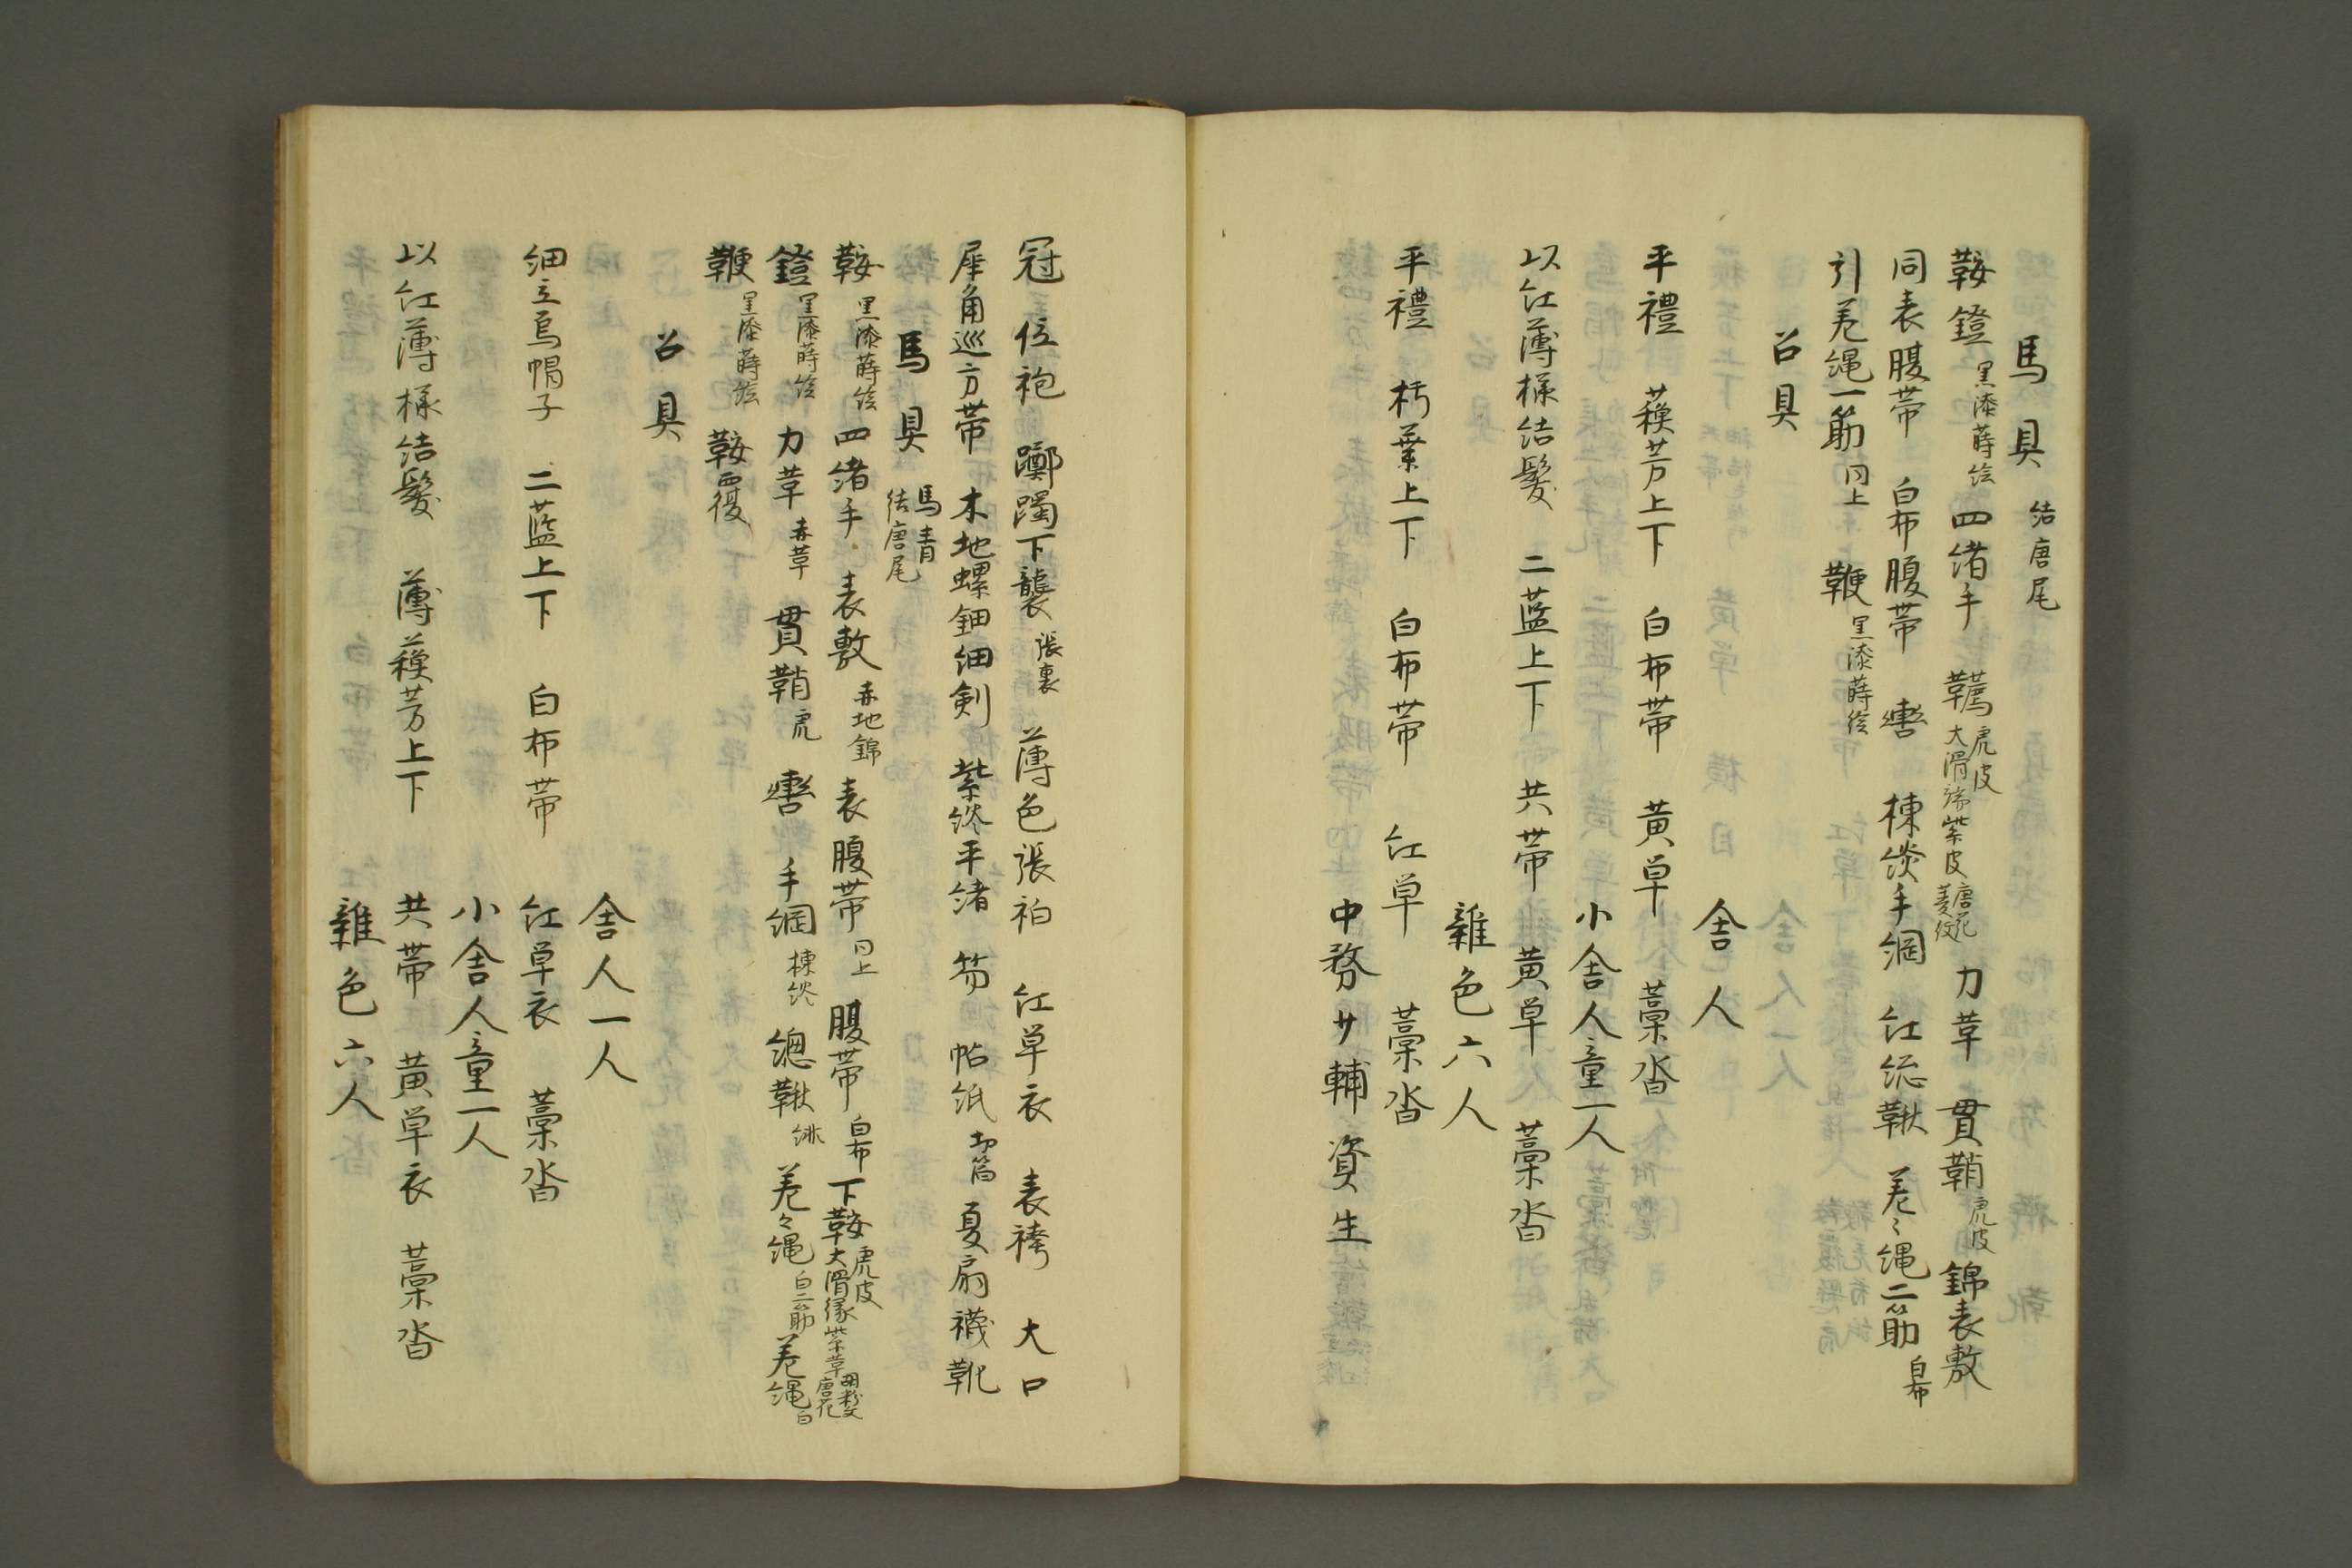 馬具 結唐尾
鞍鐙 黒漆蒔絵 四緒手 韉 虎皮 大滑 紫皮 唐花菱紋 力革 貫鞘 虎皮 錦表敷
同表腹帯 白布腹帯 轡 楝綟手綱 紅総鞦 差々縄二筋 白布
引差縄一筋 同上 鞭 黒漆蒔絵
召具
舎人
平禮 蘓芳上下 白布帯 黄単 藁沓
小舎人童一人
以紅薄様結髪 二藍上下 共帯 黄単 藁沓
雑色六人
平禮 朽葉上下 白布帯 紅単 藁沓
中務少輔資生
冠 位袍 躑躅下襲 張裏 薄色張袙 紅単衣 表袴 大口
犀角巡方帯 木地螺鈿細剣 紫綟平緒 笏 帖紙 夏扇 襪 靴
馬具 馬青 結唐尾
鞍 黒漆蒔絵 四緒手 表敷 赤地錦 表腹帯 同上 腹帯 白布 下鞍 虎皮 大滑縁紫革 唐花
鐙 黒漆蒔絵 力革 赤革 貫鞘 虎 轡 手綱 楝綟 総鞦 緋 差々縄 白二筋 差縄 白
鞭 黒漆蒔絵 鞍覆
召具
舎人一人
細立烏帽子 二藍上下 白布帯 紅単衣 藁沓
小舎人童一人
以紅薄様結髪 薄蘓芳上下 共帯 黄単衣 藁沓
雑色六人